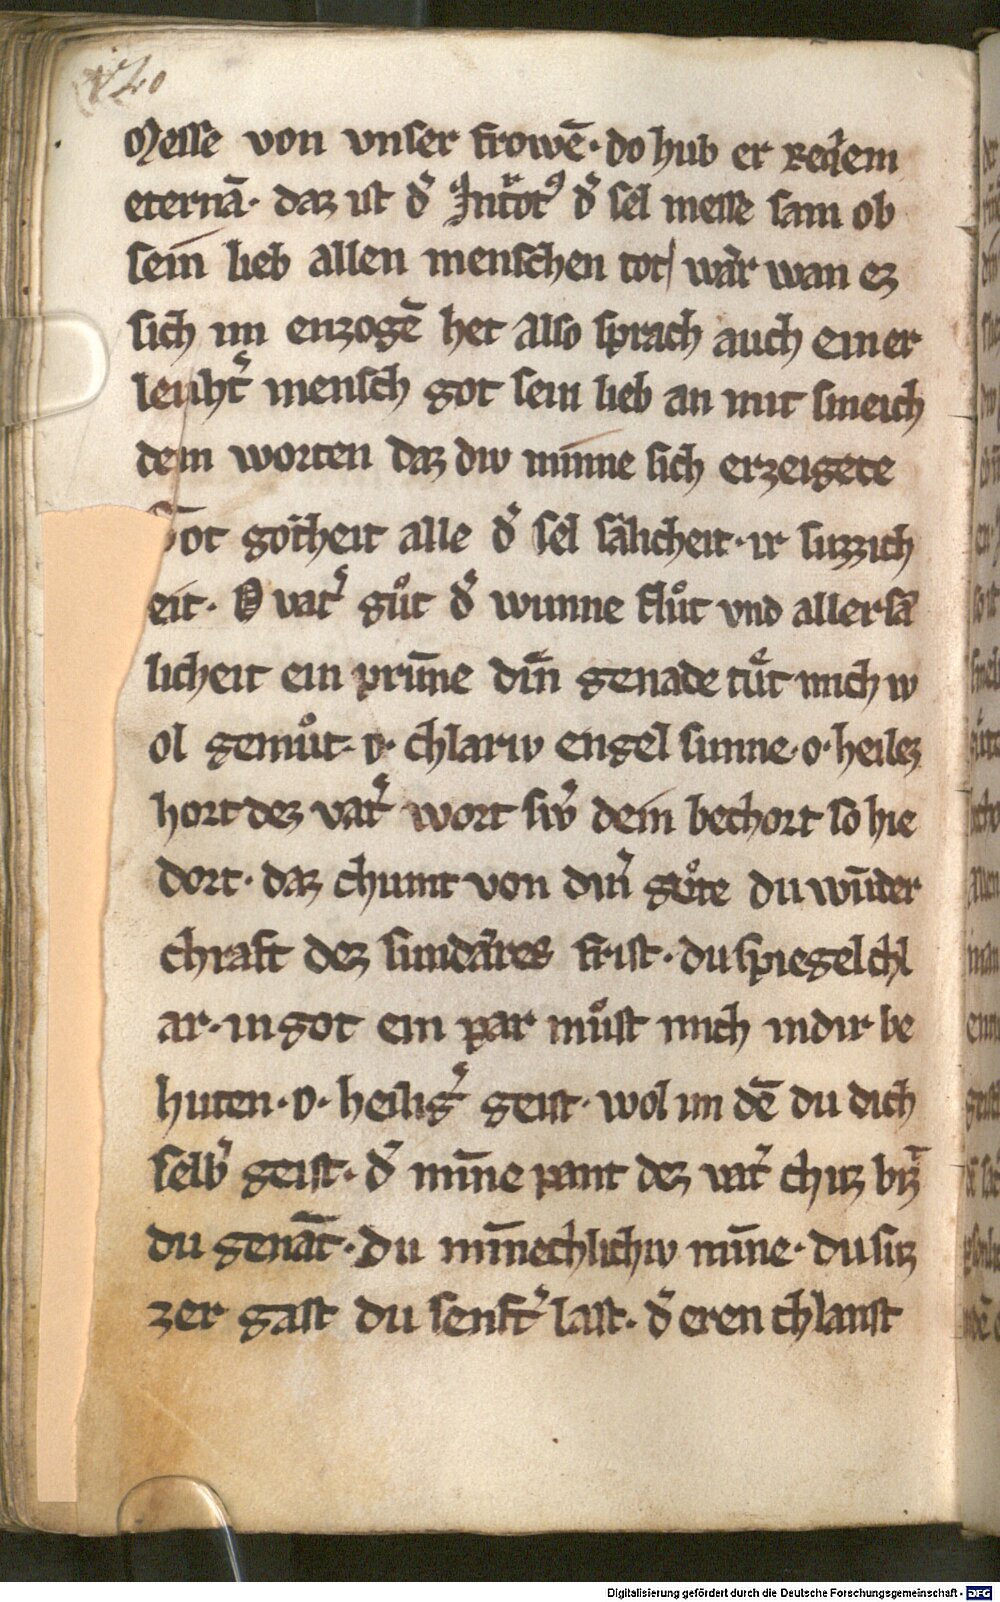 120
Messe von vnser frowē · do hub er Reqͥem
eternā · daz ist dˢ Introͥtꝰ dˢ sel messe sam ob
sein lieb allen menschen tot wár wan ez
sich im enzogē het also sprach auch ein er
leuhtˢ mensch got sein lieb an mit sineich
dem worten daz div minne sich erzeigete
Got gotheit alle dˢ sel sálicheit · ir suzzich
eit · O vatˢ gůt dˢ wunne flůt vnd aller sá
licheit ein prūne din̄ genade tůt mich w
ol gemůt · o · chlariv engel sunne · o · heilez
hort dez vatˢ wort swˢ dein bechort so hie
dort · daz chumt von dinˢ gůte du wūder
chraft dez sundáres frist · du spiegel chl
ar · in got ein par můst mich in dir be
huten · o · heiligˢ geist · wol im dē du dich
selbˢ geist · dˢ mīne pant dez vatˢ chuz bīz
du genāt · du minnechlichiv mīne · du suz
zer gast du senftˢ last · dˢ eren chlanst
Digitalisierung gefördert durch die Deutsche Forschungsgemeinschaft - DFG